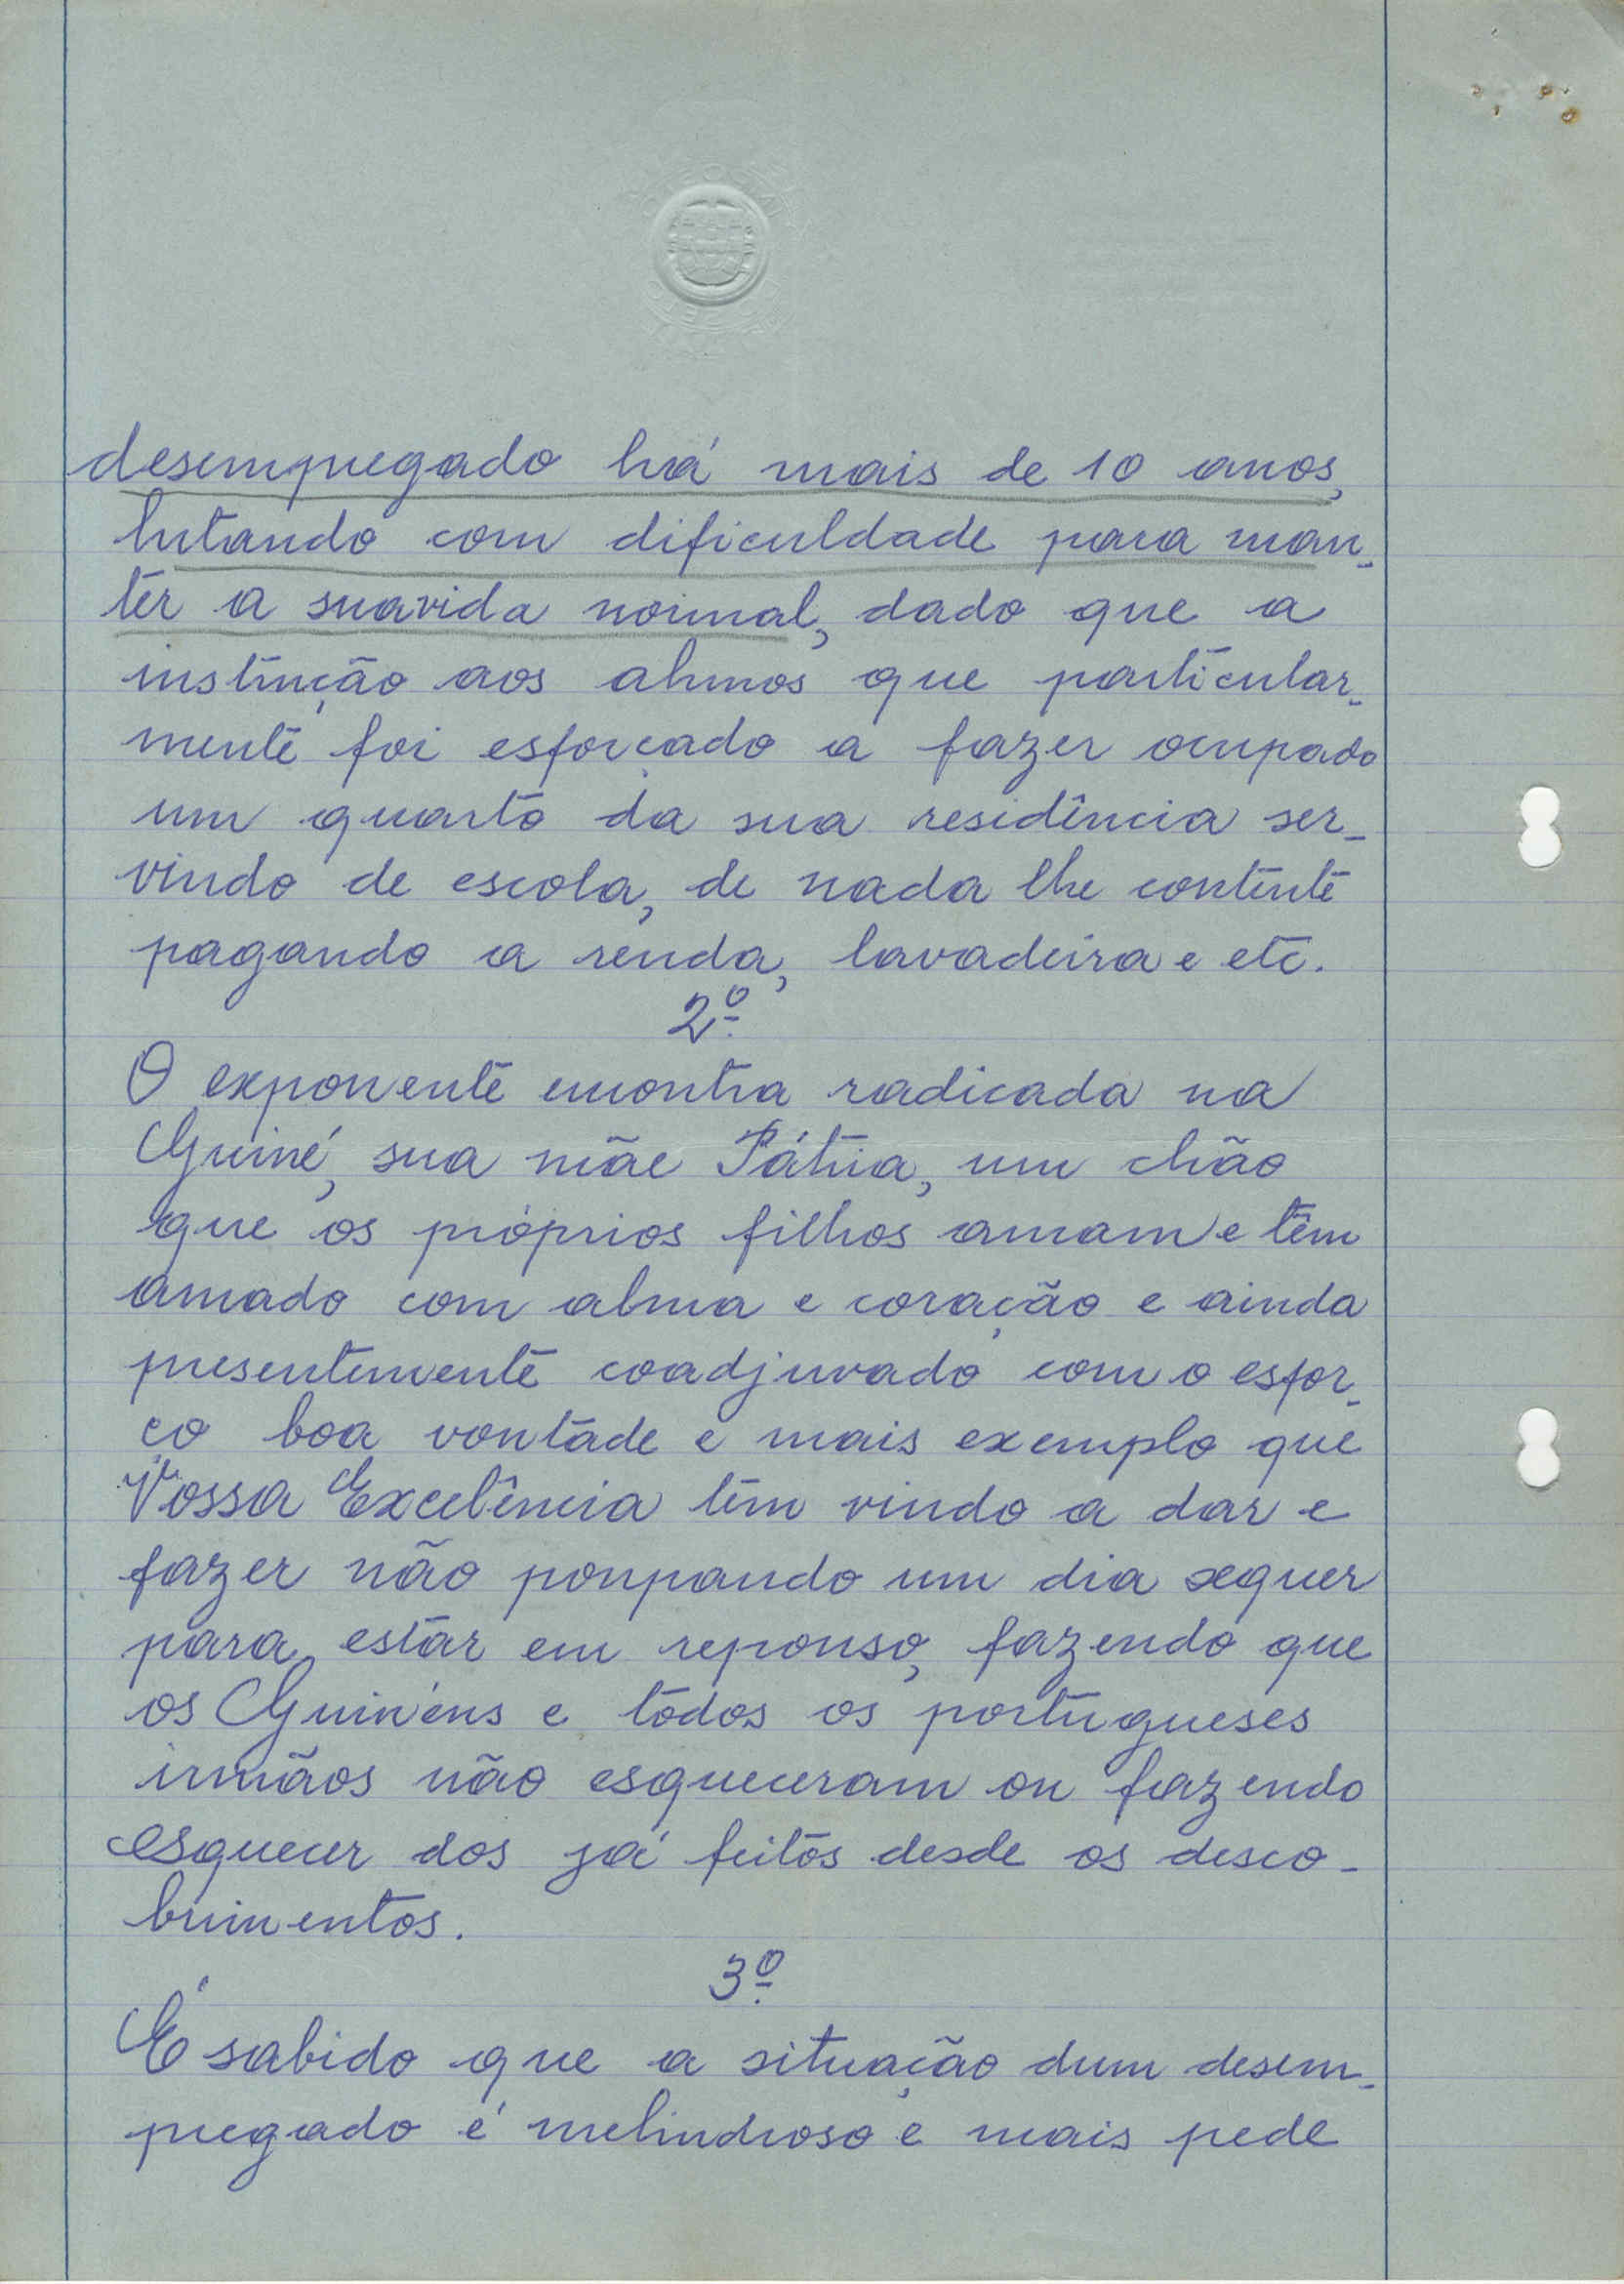 desempregado há mais de 10 anos,
lutando com dificuldade para man-
ter a suavida normal, dado que a
instrução aos alunos que particular-
mente foi esforçado a fazer ocupado
um quarto da sua residência ser-
vindo de escola, de nada lhe contente
pagando a renda, lavadeira e etc.
2º
O exponente encontra radicada na
Guiné, sua mãe Pátria, um chão
que os próprios filhos amam e têm
amado com alma e coração e ainda
presentemente coadjuvado com o esfor-
ço boa vontade e mais exemplo que
Vossa Excelência têm vindo a dar e
fazer não poupando um dia sequer
para estar em repouso, fazendo que
os Guinéns e todos os portugueses
irmãos não esqueceram ou fazendo
esquecer dos já feitos desde os desco-
brimentos.
3º
É sabido que a situação dum desem-
pregado é melindroso e mais pede